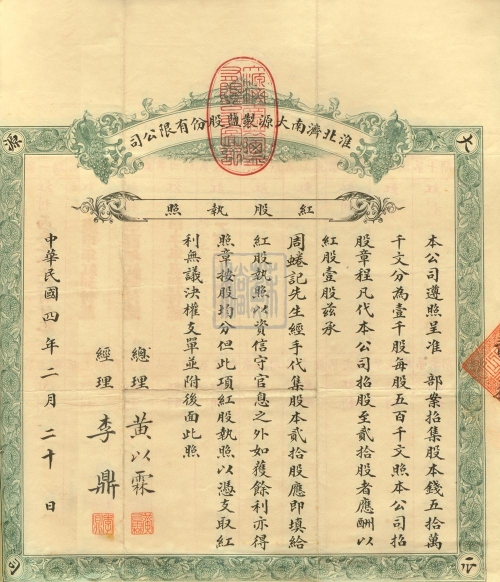 淮北濟南大源製鹽股份有限公司
紅股執照
本公司遵照呈准　部案招集股本錢五拾萬
千文分為壹千股每股五百千文照本公司招
股章程凡代本公司招股至貳拾股者應酬以
紅股壹股茲承
周蜷記先生經手代集股本貳拾股應即填給
紅股執照以資信守官息之外如獲餘利亦得
照章按股均分但此項紅股執照以憑支取紅
利無議決權支單並附後面此照
總理　黃以霖
經理　李鼎
中華民國四年二月二十日
大
源
公